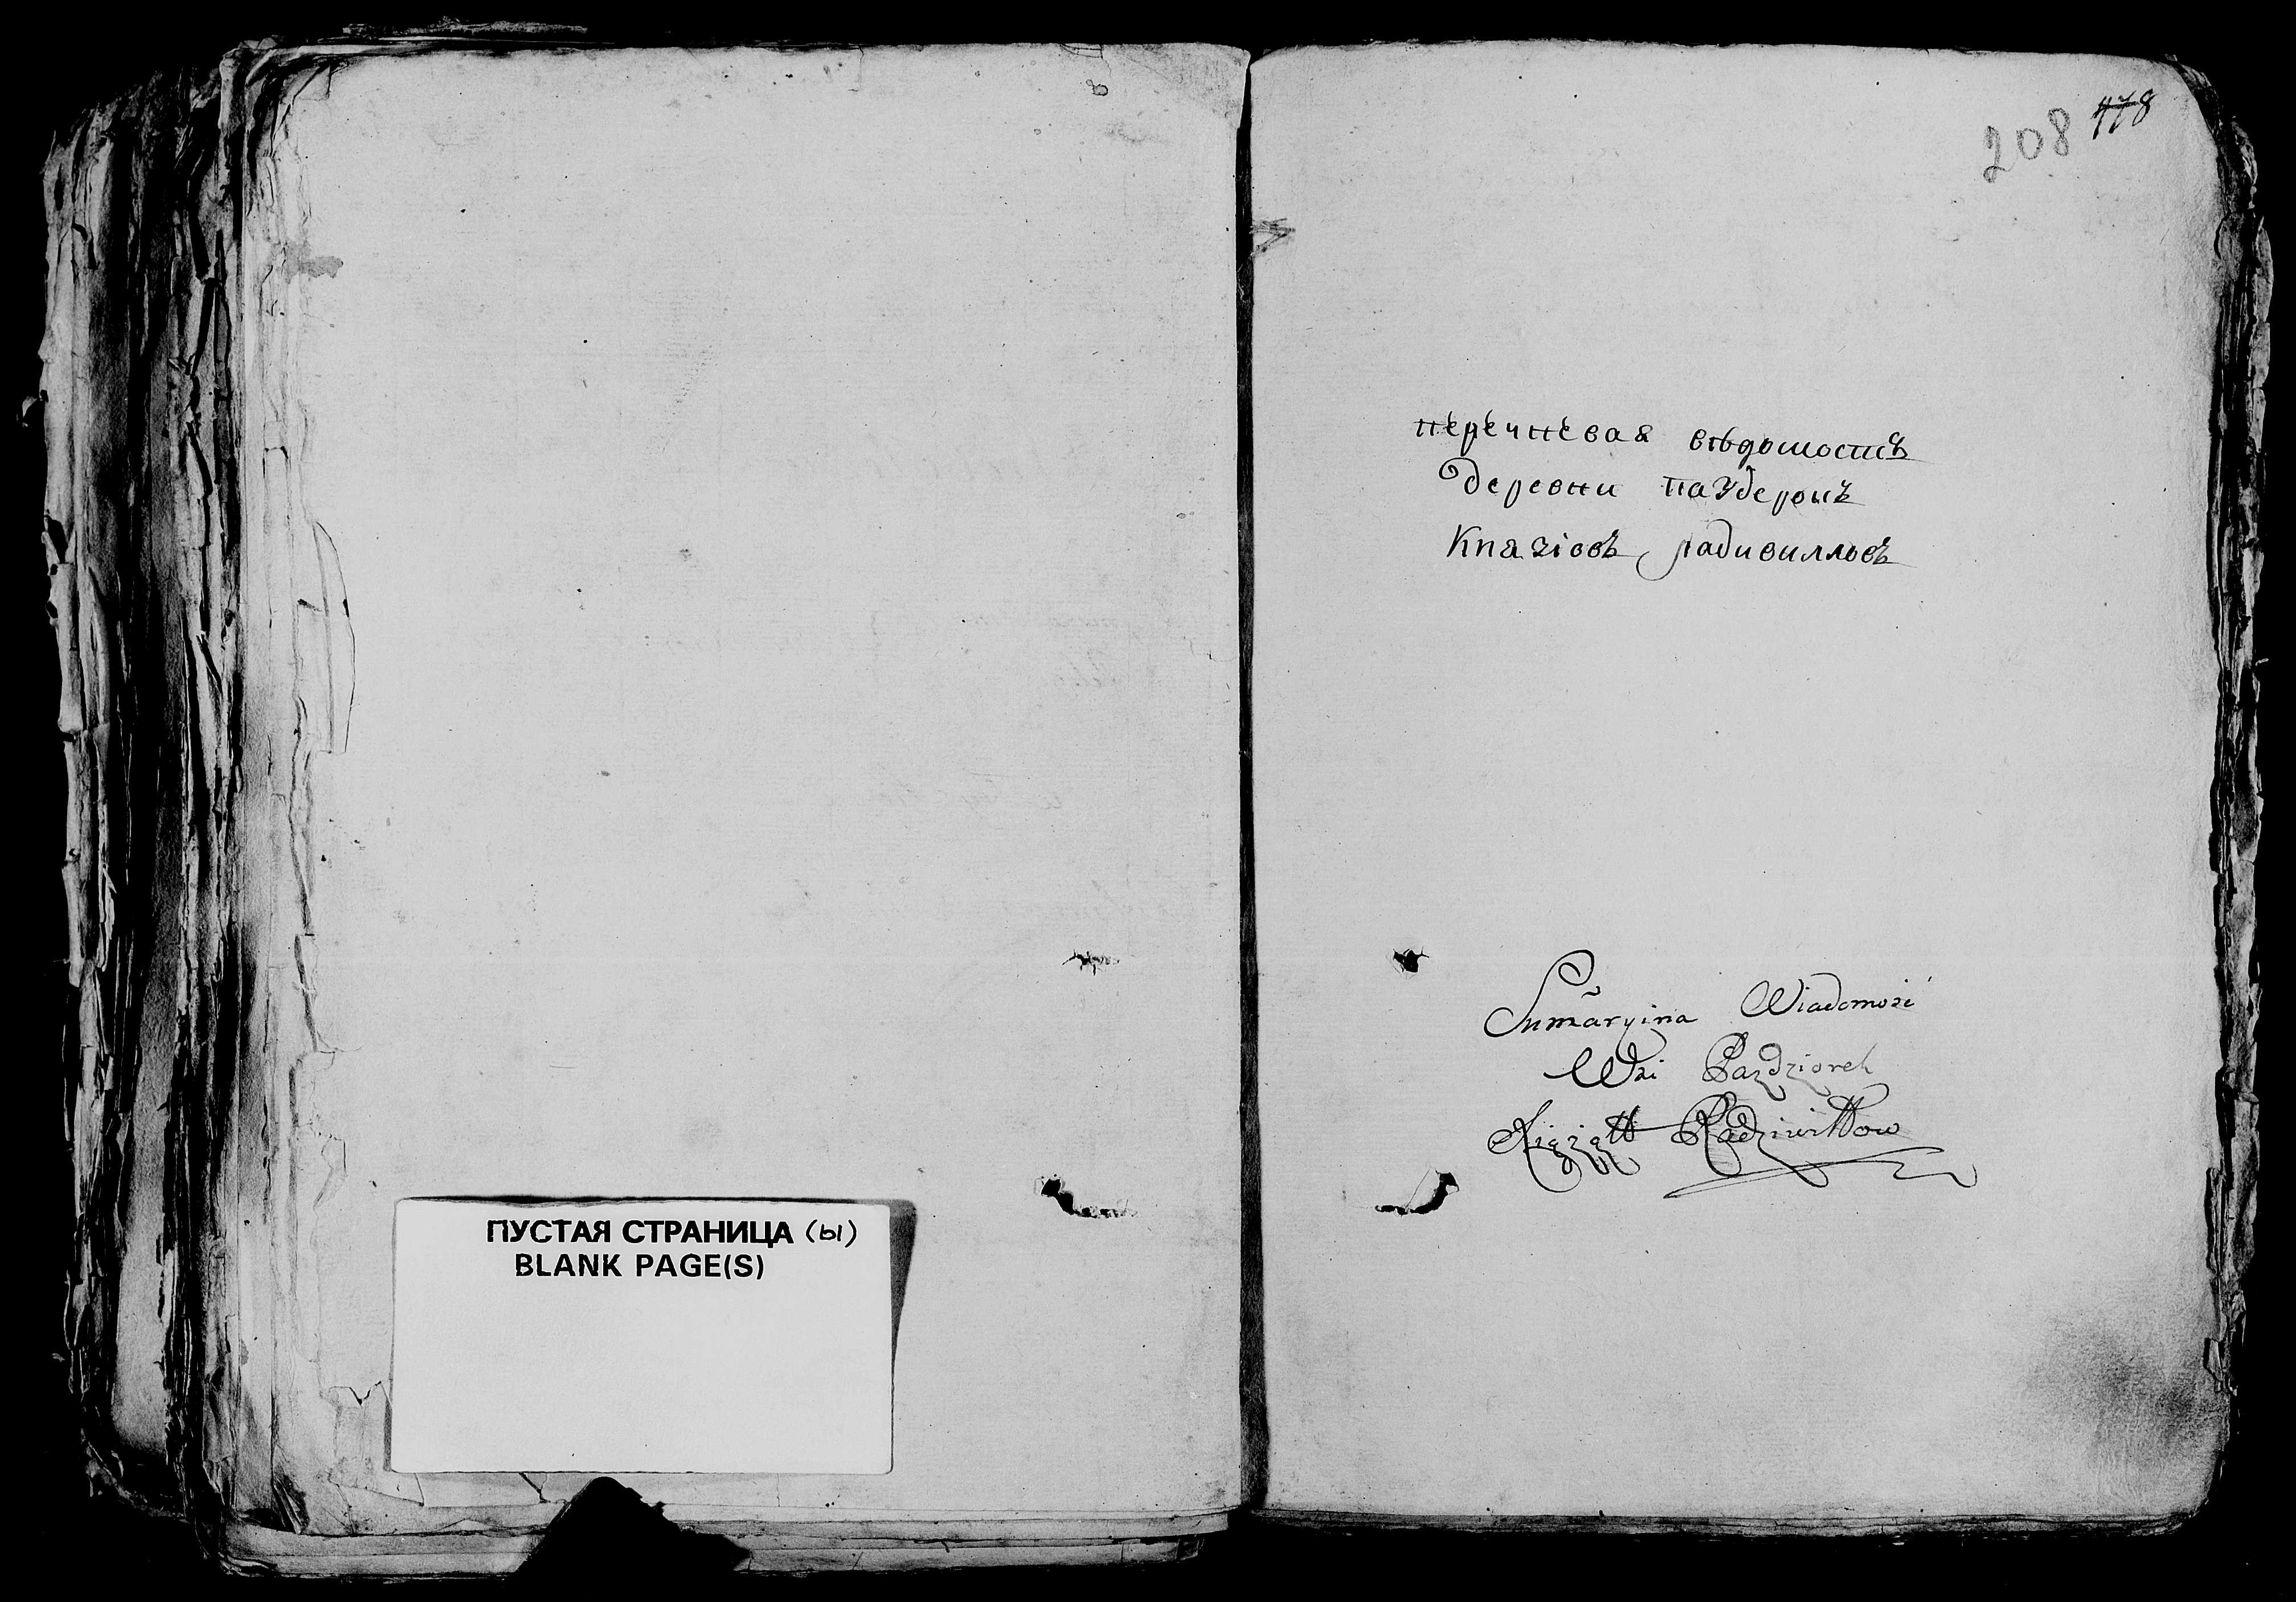 ПУСТАЯ СТРАНИЦА (ы)
BLANK PAGE(S)
208 478
перечневая вѣдомость
деревни паздерокъ
Князіовъ радивилловъ
Sum̃aryina Wiadomość
Wsi Pazdziorek
Xiążątt Radziwiłłow